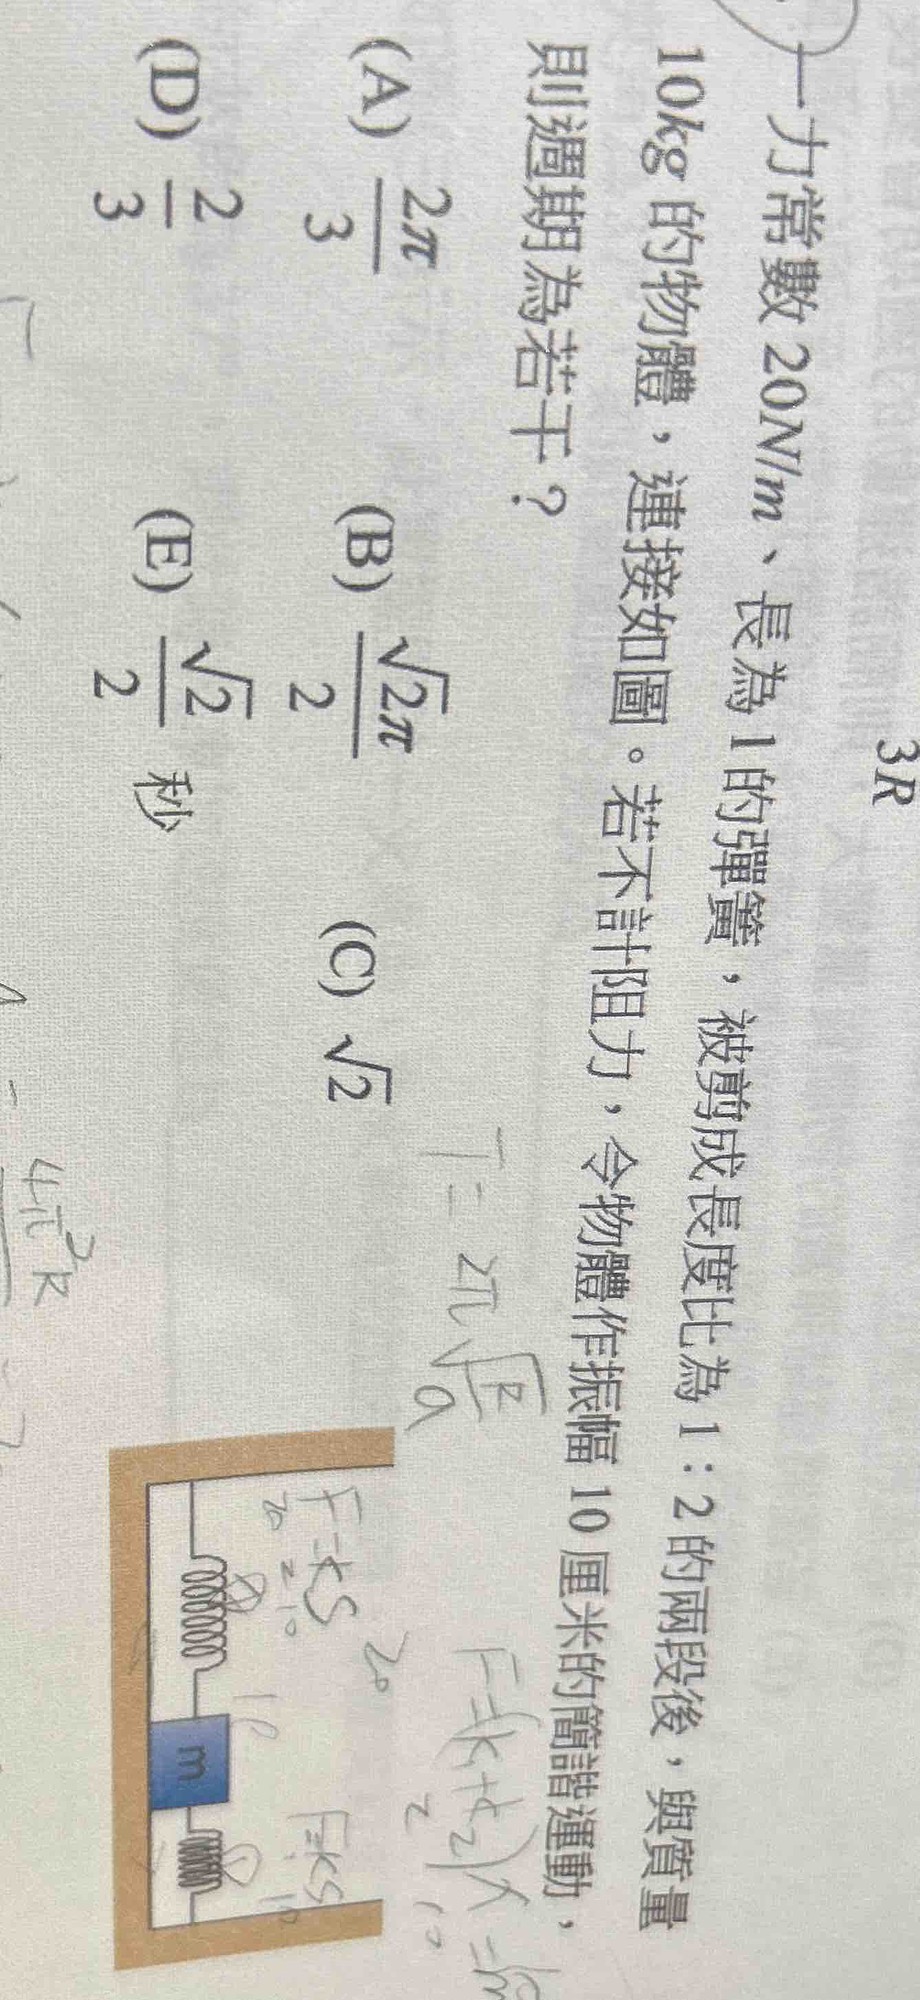 3R
一力常數 20N/m、長為 1 的彈簧，被剪成長度比為 1：2 的兩段後，與質量
10kg 的物體，連接如圖。若不計阻力，令物體作振幅 10 厘米的簡諧運動，
則週期為若干？
(A) 2π/3 (B) √2π/2 (C) √2
(D) 2/3 (E) √2/2 秒
T = 2π √R/a
F=(k₁+k₂)x = m
2 10
20
F=kS
20 2 10
F=kS
10
10
m
4π²R